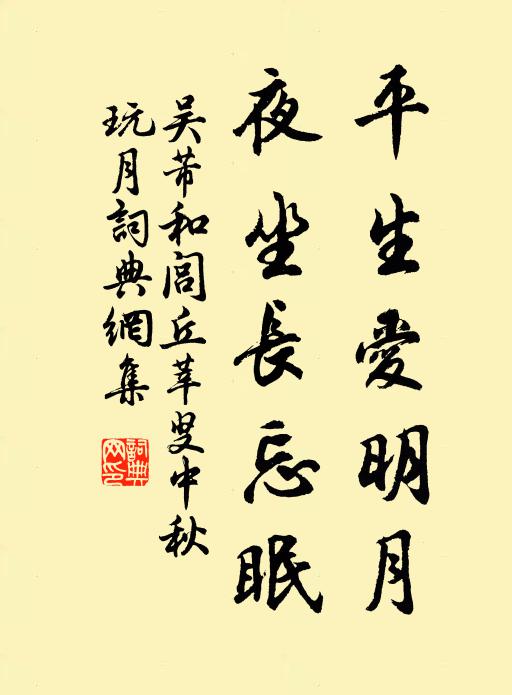 平生愛明月
夜坐長忘眠
吳芾和閭丘莘叟中秋
玩月詞典網集
詞典網印